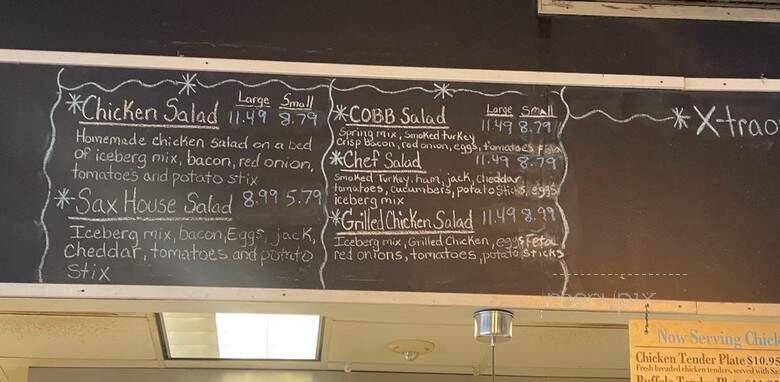 *Chicken Salad Large Small
11.49 8.79
Homemade chicken salad on a bed
of iceberg mix, bacon, red onion,
tomatoes and potato stix
*Sax House Salad 8.99 5.79
Iceberg mix, bacon, Eggs, jack,
cheddar, tomatoes and potato
stix
*COBB Salad Large Small
11.49 8.79
Spring mix, smoked turkey
crisp bacon, red onion, eggs, tomatoes Feta
*Chef Salad 11.49 8.79
Smoked Turkey, ham, jack, cheddar,
tomatoes, cucumbers, potato sticks, eggs
iceberg mix
*Grilled Chicken Salad 11.49 8.99
Iceberg mix, Grilled Chicken, eggs Feta
red onions, tomatoes, potato sticks
*X-trao
menupix
Now Serving Chick
Chicken Tender Plate $10.95
Fresh breaded chicken tenders, served with